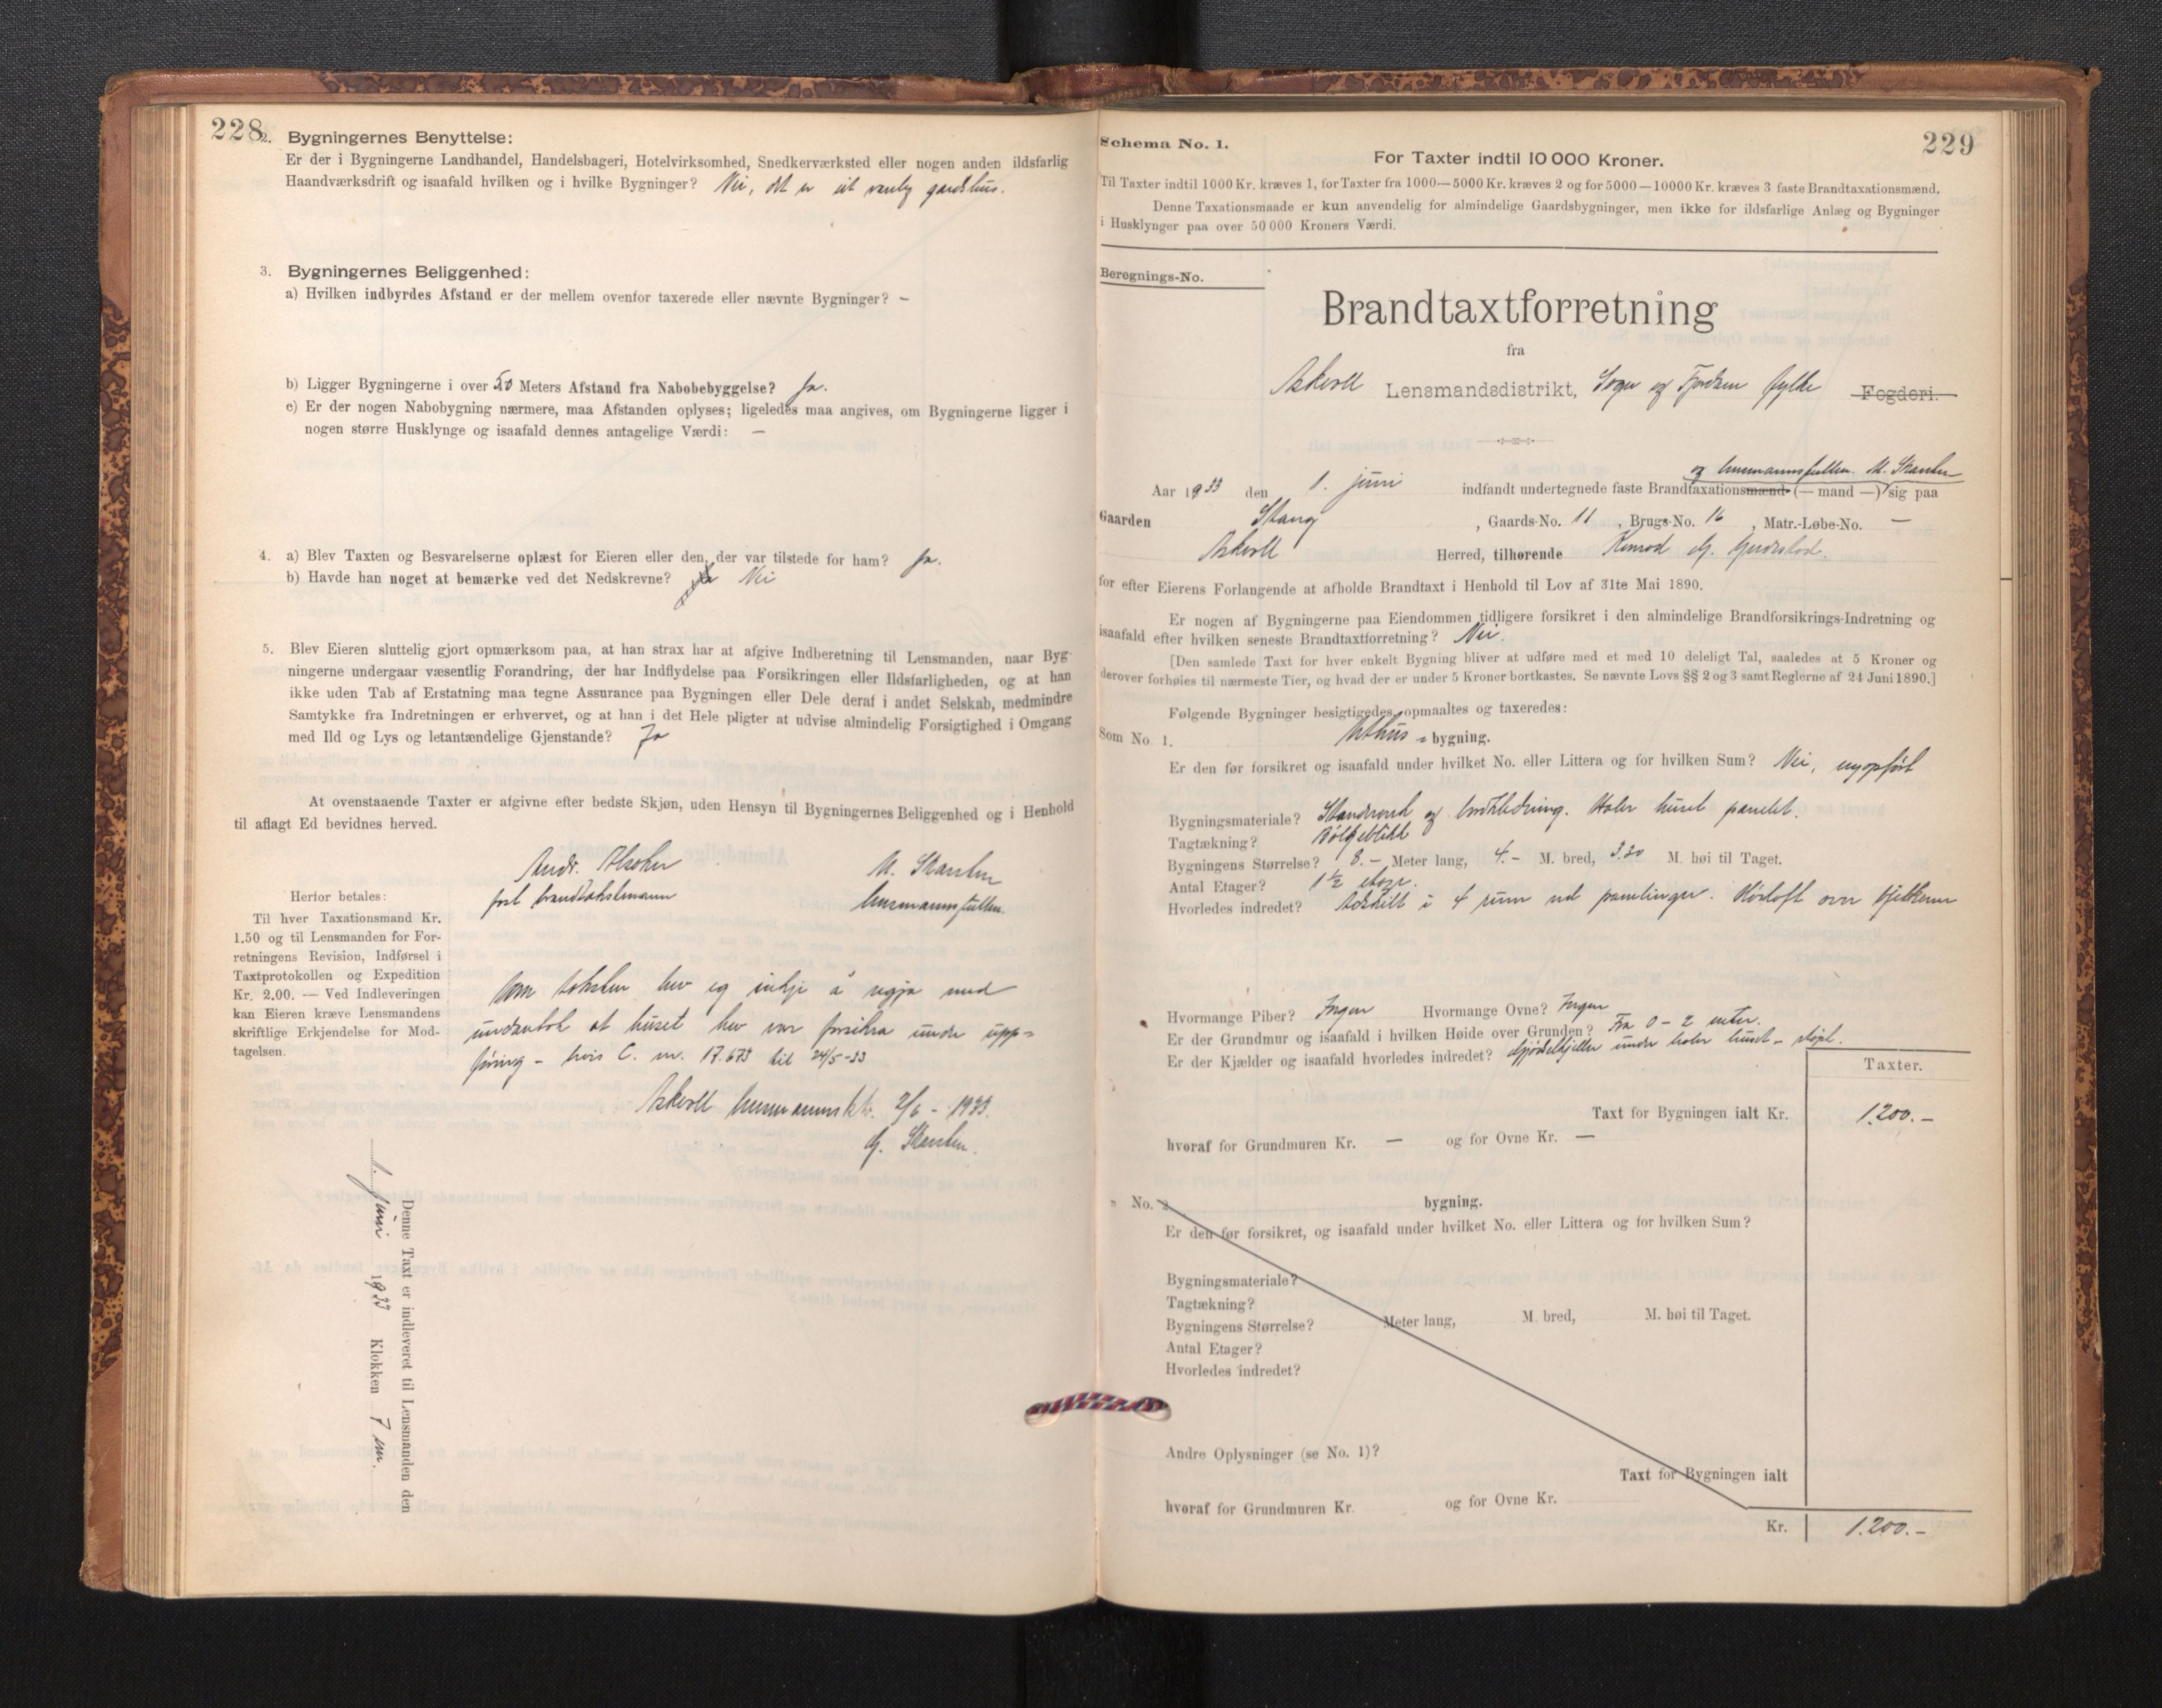 228
2. Bygningernes Benyttelse:
Er der i Bygningerne Landhandel, Handelsbageri, Hotelvirksomhed, Snedkerværksted eller nogen anden ildsfarlig
Haandværksdrift og isaafald hvilken og i hvilke Bygninger? Nei, det er eit vanleg gardshus.
3. Bygningernes Beliggenhed:
a) Hvilken indbyrdes Afstand er der mellem ovenfor taxerede eller nævnte Bygninger? –
b) Ligger Bygningerne i over 50 Meters Afstand fra Nabobebyggelse? Ja.
c) Er der nogen Nabobygning nærmere, maa Afstanden oplyses; ligeledes maa angives, om Bygningerne ligger i
nogen større Husklynge og isaafald dennes antagelige Værdi: —
4. a) Blev Taxten og Besvarelserne oplæst for Eieren eller den, der var tilstede for ham? Ja.
b) Havde han noget at bemærke ved det Nedskrevne? Nei
5. Blev Eieren sluttelig gjort opmærksom paa, at han strax har at afgive Indberetning til Lensmanden, naar Byg-
ningerne undergaar væsentlig Forandring, der har Indflydelse paa Forsikringen eller Ildsfarligheden, og at han
ikke uden Tab af Erstatning maa tegne Assurance paa Bygningen eller Dele deraf i andet Selskab, medmindre
Samtykke fra Indretningen er erhvervet, og at han i det Hele pligter at udvise almindelig Forsigtighed i Omgang
med Ild og Lys og letantændelige Gjenstande? Ja
At ovenstaaende Taxter er afgivne efter bedste Skjøn, uden Hensyn til Bygningernes Beliggenhed og i Henhold
til aflagt Ed bevidnes herved.
Andr. M. Skarsten
fast brandtakstmann lensmannsfullm.
Herfor betales:
Til hver Taxationsmand Kr.
1.50 og til Lensmanden for For-
retningens Revision, Indførsel i
Taxtprotokollen og Expedition
Kr. 2.00. — Ved Indleveringen
kan Eieren kræve Lensmandens
skriftlige Erkjendelse for Mod-
tagelsen.
Um taksten hev eg inkje å segja med
undantak at huset hev vore forsikra under upp-
føring – polis C. nr. 17.673 til 24/5-33
Askvoll lensmannsktr. 2/6 - 1933.
Skarsten.
Denne Taxt er indleveret til Lensmanden den
1. juni 1933 Klokken 7 em.
229
Schema No. 1.
For Taxter indtil 10 000 Kroner.
Til Taxter indtil 1000 Kr. kræves 1, for Taxter fra 1000—5000 Kr. kræves 2 og for 5000—10000 Kr. kræves 3 faste Brandtaxationsmænd.
Denne Taxationsmaade er kun anvendelig for almindelige Gaardsbygninger, men ikke for ildsfarlige Anlæg og Bygninger
i Husklynger paa over 50 000 Kroners Værdi.
Beregnings-No.
Brandtaxtforretning
fra
Askvoll Lensmandsdistrikt, Sogn og Fjordane fylke Fogderi.
og lensmannsfullm. M. Skarsten
Aar 1933 den 1. juni indfandt undertegnede faste Brandtaxationsmænd (— mand —) sig paa
Gaarden Stang, Gaards-No. 11, Brugs-No. 16, Matr.-Løbe-No. —
Askvoll Herred, tilhørende Konrad
for efter Eierens Forlangende at afholde Brandtaxt i Henhold til Lov af 31te Mai 1890.
Er nogen af Bygningerne paa Eiendommen tidligere forsikret i den almindelige Brandforsikrings-Indretning og
isaafald efter hvilken seneste Brandtaxtforretning? Nei.
[Den samlede Taxt for hver enkelt Bygning bliver at udføre med et med 10 deleligt Tal, saaledes at 5 Kroner og
derover forhøies til nærmeste Tier, og hvad der er under 5 Kroner bortkastes. Se nævnte Lovs §§ 2 og 3 samt Reglerne af 24 Juni 1890.]
Følgende Bygninger besigtigedes, opmaaltes og taxeredes:
Som No. 1. Uthus - bygning.
Er den før forsikret og isaafald under hvilket No. eller Littera og for hvilken Sum? Nei, nyopført
Bygningsmateriale? og bordkledning. Heler huset panelet.
Tagtækning? Bølgeblikk
Bygningens Størrelse? 8.- Meter lang, 4.- M. bred, 3.20 M. høi til Taget.
Antal Etager? 1½ etage.
Hvorledes indredet? Adskilt i 4 rum ved panelinger. Høiloft over fjøskrum
Hvormange Piber? Ingen Hvormange Ovne? Ingen
Er der Grundmur og isaafald i hvilken Høide over Grunden? Fra 0 - 2 meter.
Er der Kjælder og isaafald hvorledes indredet? Gjødselkjeller under heler huset - støpt.
Taxter.
Taxt for Bygningen ialt Kr. 1200.-
hvoraf for Grundmuren Kr. — og for Ovne Kr. —
" No. 2 bygning.
Er den før forsikret, og isaafald under hvilket No. eller Littera og for hvilken Sum?
Bygningsmateriale?
Tagtækning?
Bygningens Størrelse? Meter lang, M. bred, M. høi til Taget.
Antal Etager?
Hvorledes indredet?
Andre Oplysninger (se No. 1)?
Taxt for Bygningen ialt
hvoraf for Grundmuren Kr. og for Ovne Kr.
Kr. 1200.-